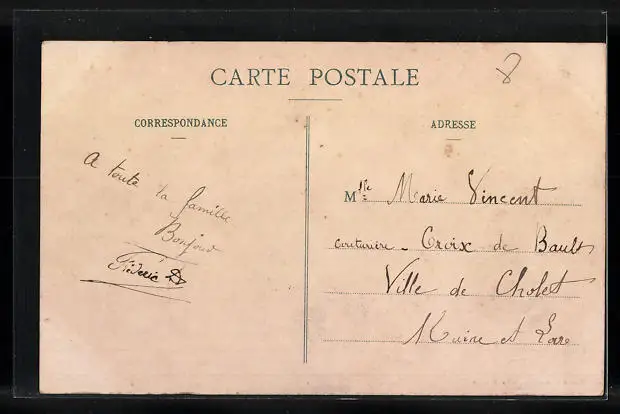 CARTE POSTALE
CORRESPONDANCE
A toute la famille
Bonjour
Fréderic D
ADRESSE
Mlle Marie Vincent
couturière - Croix de Bault
Ville de Cholet
Maine et Loire